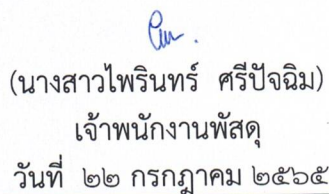 (นางสาวไพรินทร์ ศรีปัจฉิม)
เจ้าพนักงานพัสดุ
วันที่ ๒๒ กรกฎาคม ๒๕๖๕